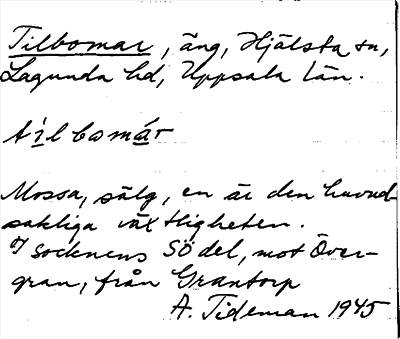 Tilbomar, äng, Hjälsta sn,
Lagunda hd, Uppsala län.
tilbomár
Mossa, sälg, en är den huvud-
sakliga växtligheten.
I socknens SÖ del, mot Över-
gran, från Grantorp
A. Tideman 1945